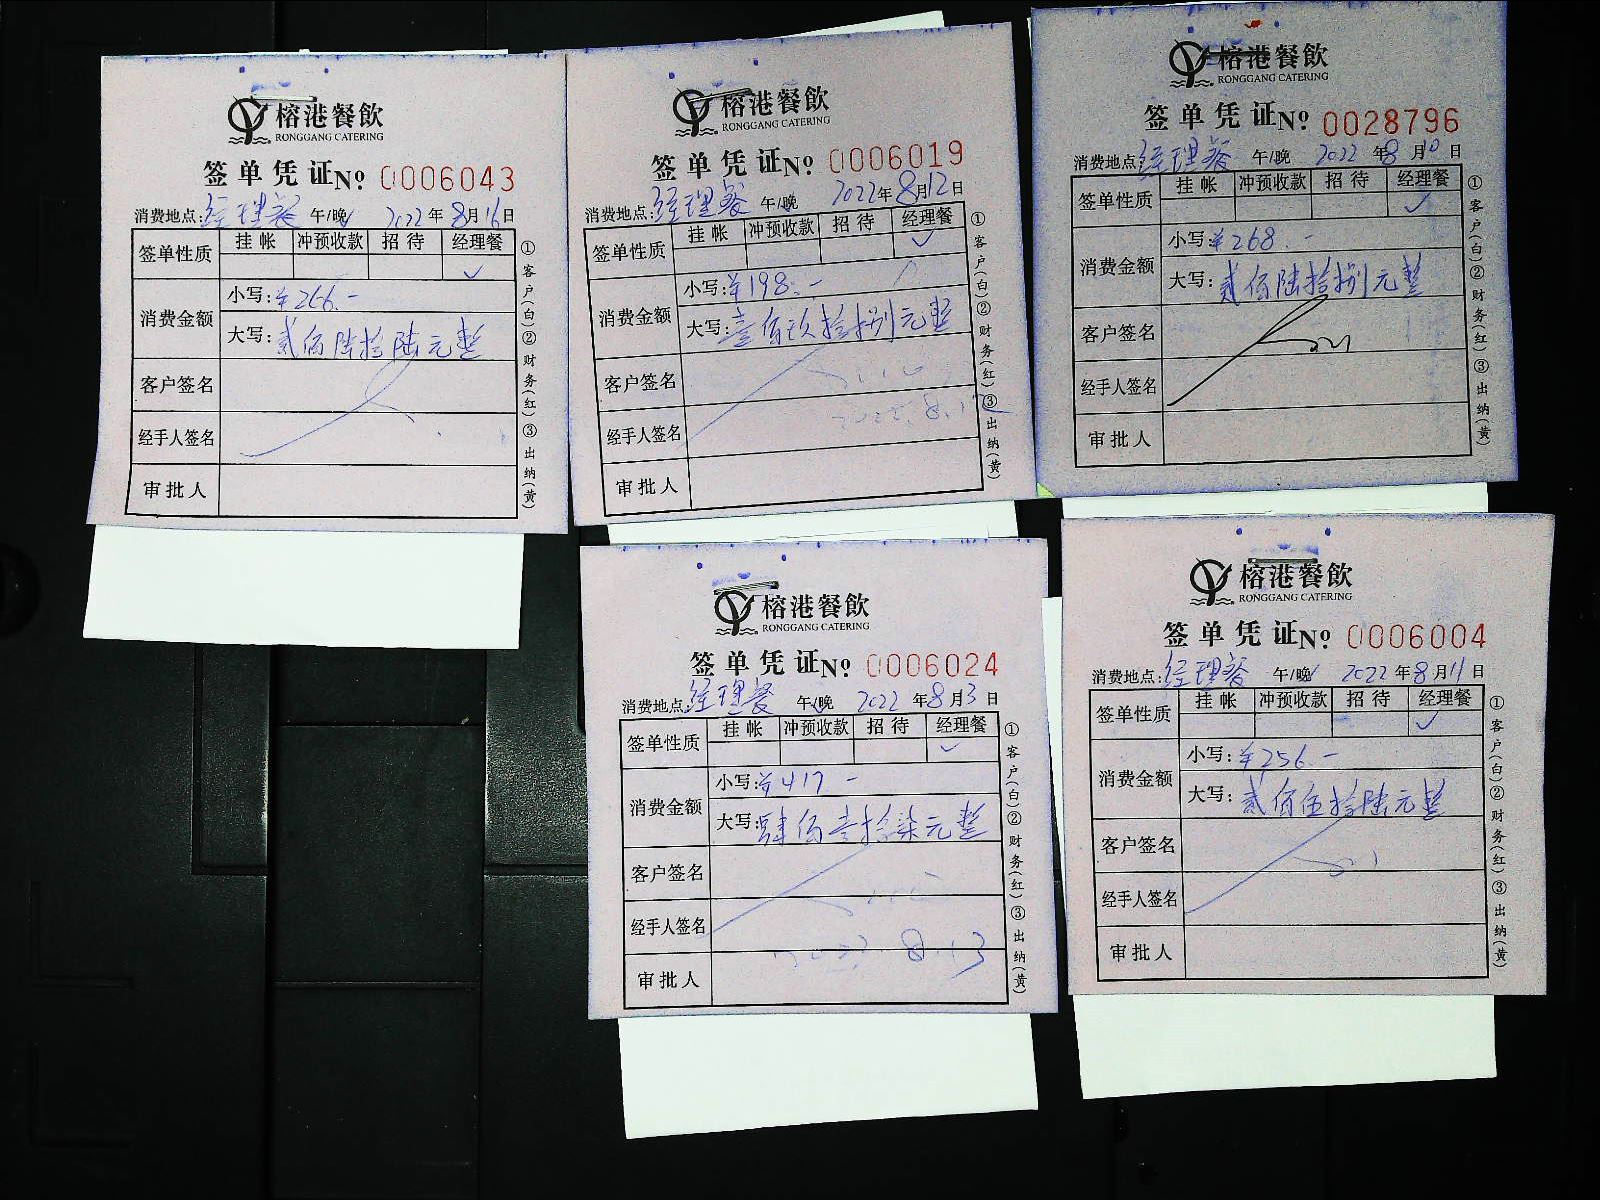 榕港餐飲
RONGGANG CATERING
签单凭证№ 0006043
消费地点:经理餐 午/晚 2022年8月16日
签单性质 挂帐 冲预收款 招待 经理餐
✓
消费金额 小写:¥266.-
大写:贰佰陆拾陆元整
客户签名
经手人签名
审批人
①客户(白)②财务(红)③出纳(黄)
榕港餐飲
RONGGANG CATERING
签单凭证№ 0006019
消费地点:经理餐 午/晚 2022年8月12日
签单性质 挂帐 冲预收款 招待 经理餐
✓
消费金额 小写:¥198.-
大写:壹佰玖拾捌元整
客户签名
经手人签名 2022.8.12
审批人
①客户(白)②财务(红)③出纳(黄)
榕港餐飲
RONGGANG CATERING
签单凭证№ 0028796
消费地点:经理餐 午/晚 2022年8月10日
签单性质 挂帐 冲预收款 招待 经理餐
✓
消费金额 小写:¥268.-
大写:贰佰陆拾捌元整
客户签名
经手人签名
审批人
①客户(白)②财务(红)③出纳(黄)
榕港餐飲
RONGGANG CATERING
签单凭证№ 0006024
消费地点:经理餐 午/晚 2022年8月13日
签单性质 挂帐 冲预收款 招待 经理餐
✓
消费金额 小写:¥417-
大写:肆佰壹拾柒元整
客户签名
经手人签名
2022.8.13
审批人
①客户(白)②财务(红)③出纳(黄)
榕港餐飲
RONGGANG CATERING
签单凭证№ 0006004
消费地点:经理餐 午/晚 2022年8月11日
签单性质 挂帐 冲预收款 招待 经理餐
✓
消费金额 小写:¥256-
大写:贰佰伍拾陆元整
客户签名
经手人签名
审批人
①客户(白)②财务(红)③出纳(黄)